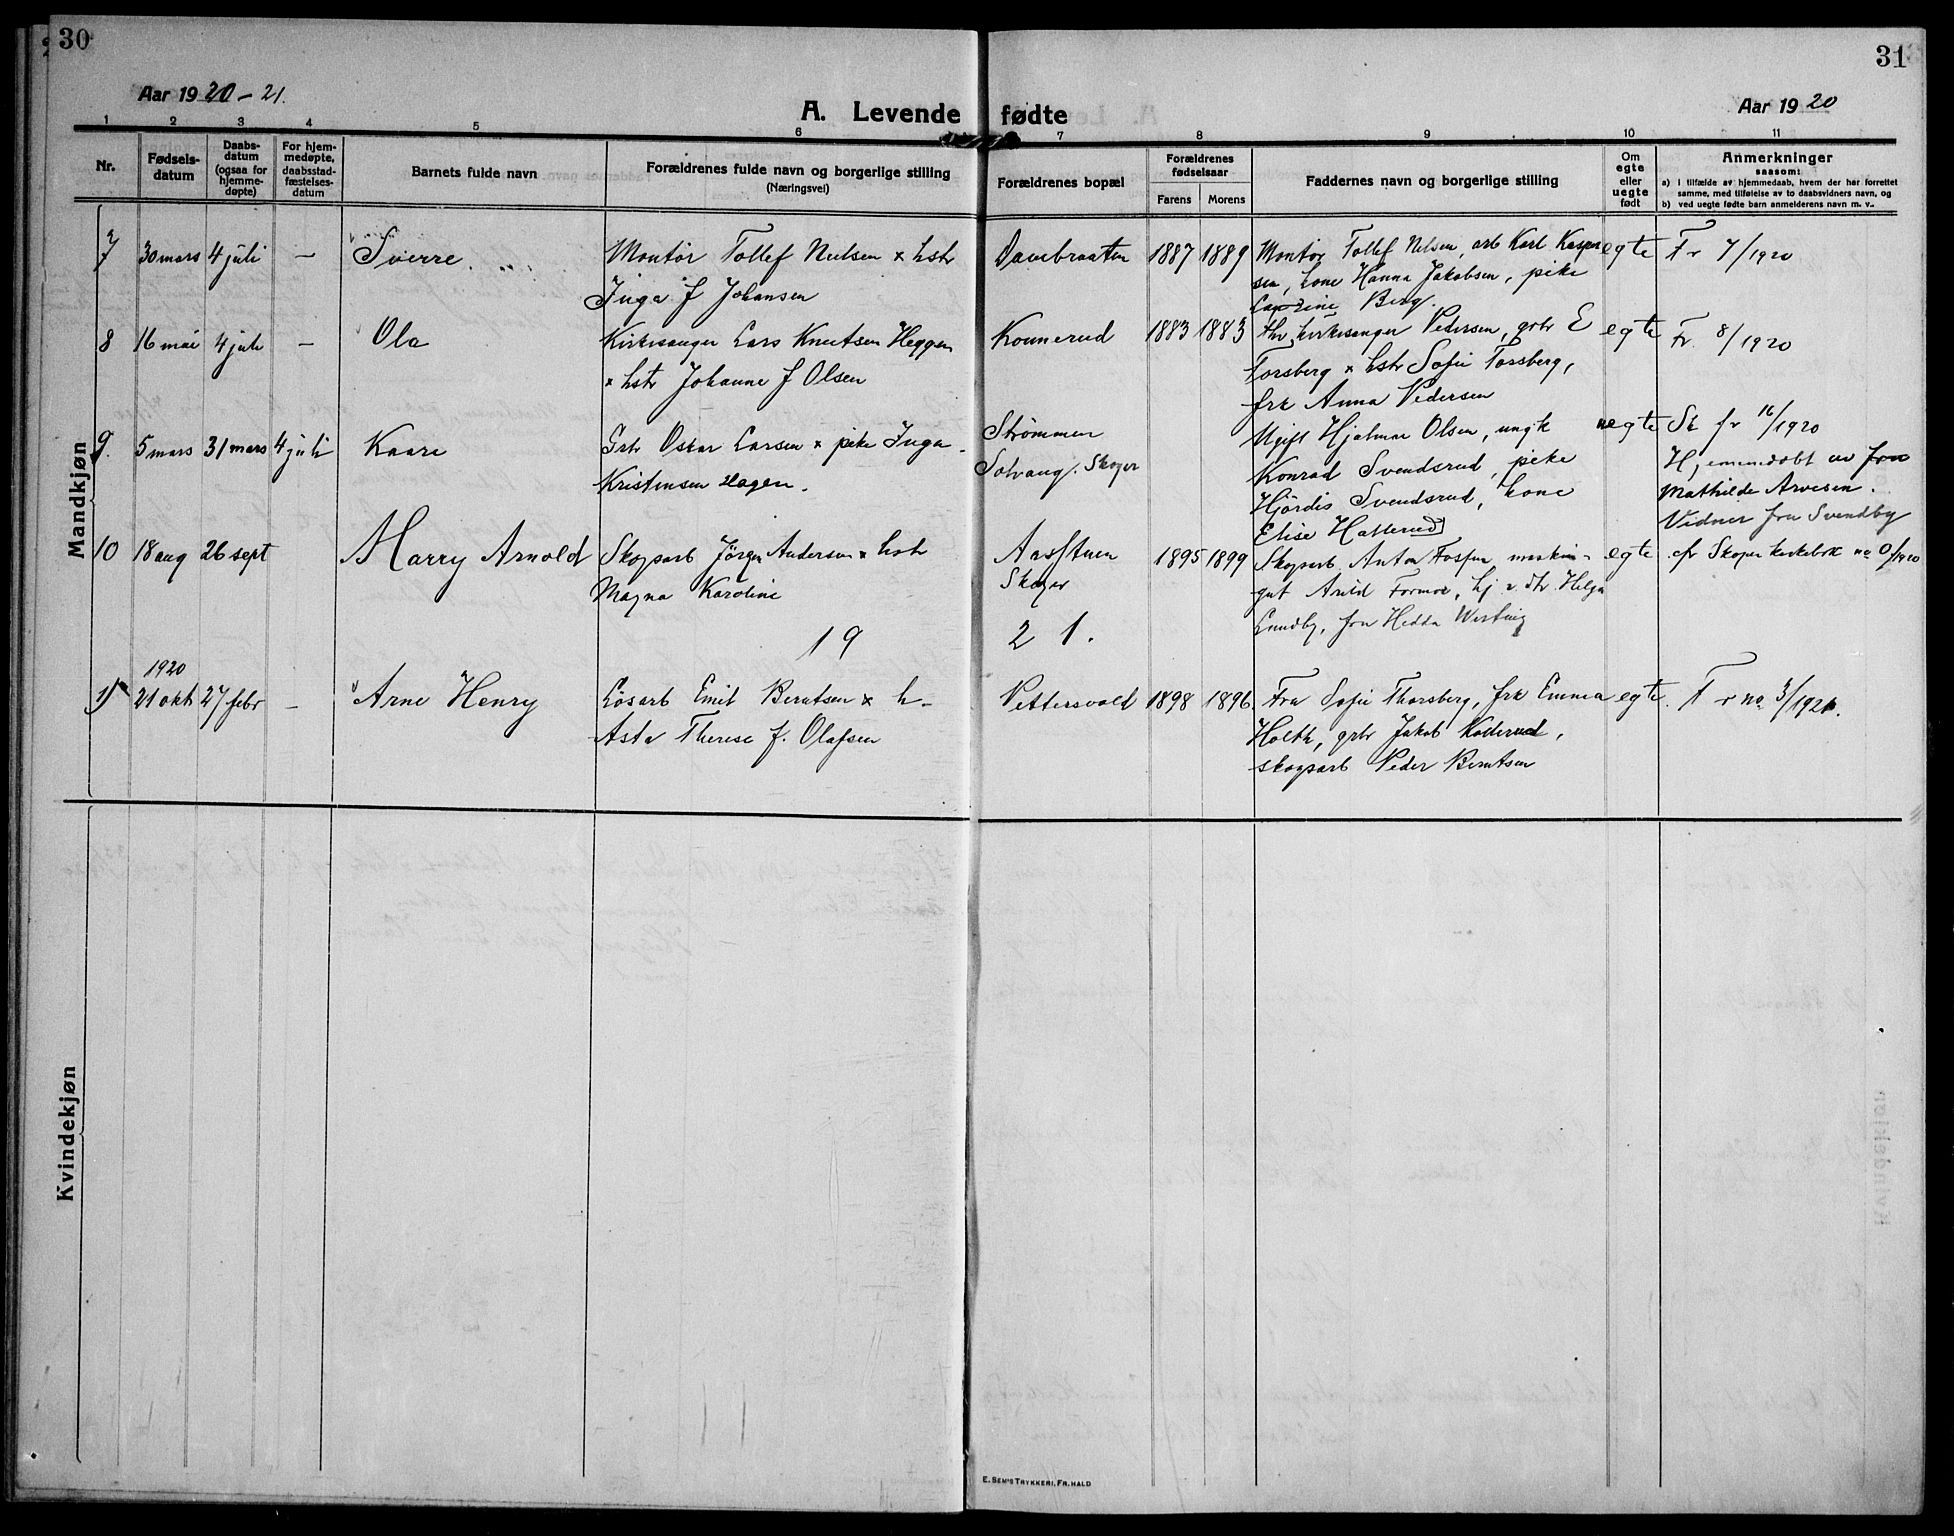 30
31
Aar 1920-21.
A. Levende fødte
Aar 1920
1 2 3 4 5 6 7 8 9 10 11
Nr.
Fødsels-
datum
Daabs-
datum
(ogsaa for
hjemme-
døpte)
For hjem-
medøpte,
daabsstad-
fæstelses-
datum
Barnets fulde navn
Forældrenes fulde navn og borgerlige stilling
(Næringsvei)
Forældrenes bopæl
Forældrenes
fødselsaar
Farens Morens
Faddernes navn og borgerlige stilling
Om
egte
eller
uegte
født
Anmerkninger
saasom:
a) i tilfælde av hjemmedaab, hvem der har forrettet
samme, med tilføielse av to daabsvidners navn, og
b) ved uegte fødte barn anmelderens navn m. v.
Mandkjøn
7 30 mars 4 juli — Sverre
Montør Tollef Nielsen x hstr
Inga f Johansen
Davebraaten 1887 1889
Montør Tollef Nilsen, arb Karl Kasper
sen, kone Hanna Jakobsen, pike
Berg.
egte
Fr 7/1920
8 16 mai 4 juli — Ola
Kirkesanger Lars Knutsen Heggen
x hstr Johanne f Olsen
Konnerud 1883 1883
Hr. kirkesanger Pedersen, grbr E
Forsberg x hstr Sofie Forsberg,
frk Anna Pedersen
egte
Fr. 8/1920
9. 5 mars 31 mars 4 juli Kaare
Grb Oskar Larsen x pike Inga
Kristensen Hagen.
Strømmen
Solvang. Skoger
Ugift Hjalmar Olsen, ungk
Konrad Svendsrud, pike
Hjördis Svendsrud, kone
Elise Hallerud
uegte
Sk fr 16/1920
Hjemmedöbt av fru
Mathilde Arvesen.
Vidner fru Svendby
10 18 aug 26 sept Harry Arnold
Skogsarb Jörgen Andersen x hstr
Magna Karoline
Skoger
1895 1899
Skogsarb. Anton
gut Arild hj v dtr Helga
Lundby, fru Hedda
egte
cfr Skoger kirkebok no 0/1920
19
2 1.
1920
11 21 okt 27 febr — Arne Henry
Løsarb Emil Berntsen x h-
Asta Therese f. Olafsen
Pettersvold 1898 1896
Fru Sofie Thorsberg, frk Emma
Holth, grbr Jakob Kollerud,
skogsarb Peder Berntsen
egte.
F r no 3/1921.
Kvindekjøn
E. SEM'S TRYKKERI, FR. HALD